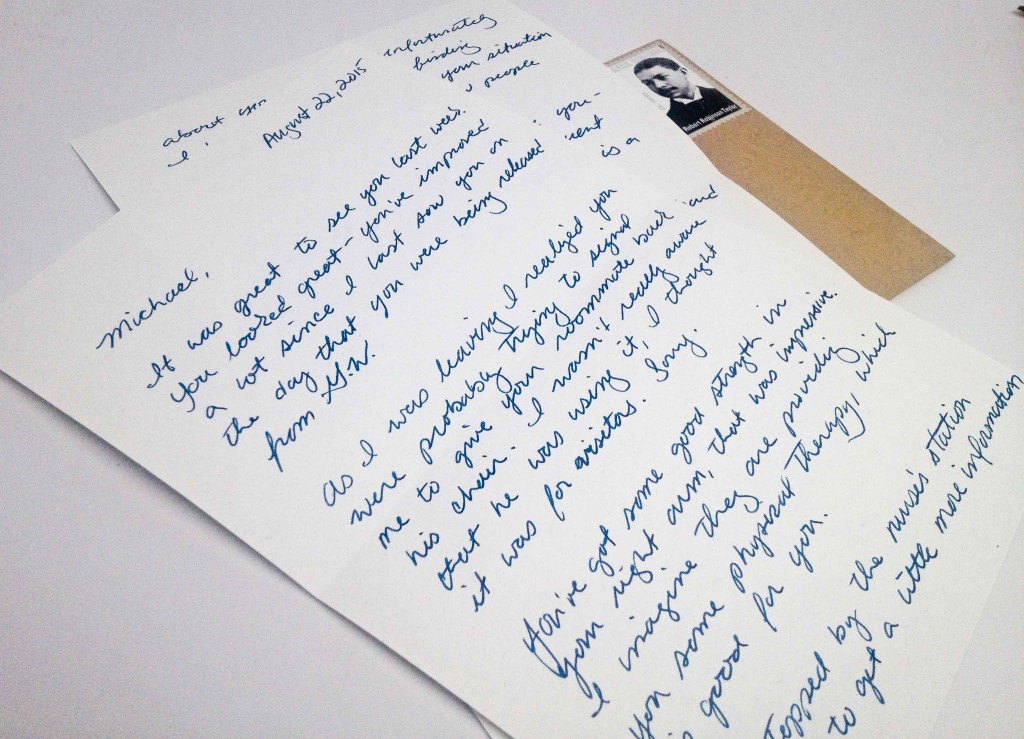 about you
I
unfortunately
finding
your situation
people
you-
is a
August 22, 2015
Michael,
It was great to see you last week.
You looked great - you've improved
a lot since I last saw you on
the day that you were being released
from G.W.
As I was leaving I realized you
were probably trying to signal
me to give your roommate back
his chair. I wasn't really aware
that he was using it, I thought
it was for visitors. Sorry.
You've got some good strength in
your right arm, that was impressive.
I imagine they are providing
you some physical therapy, which
is good for you.
stopped by the nurse's station
to get a little more information
Robert Robinson Taylor